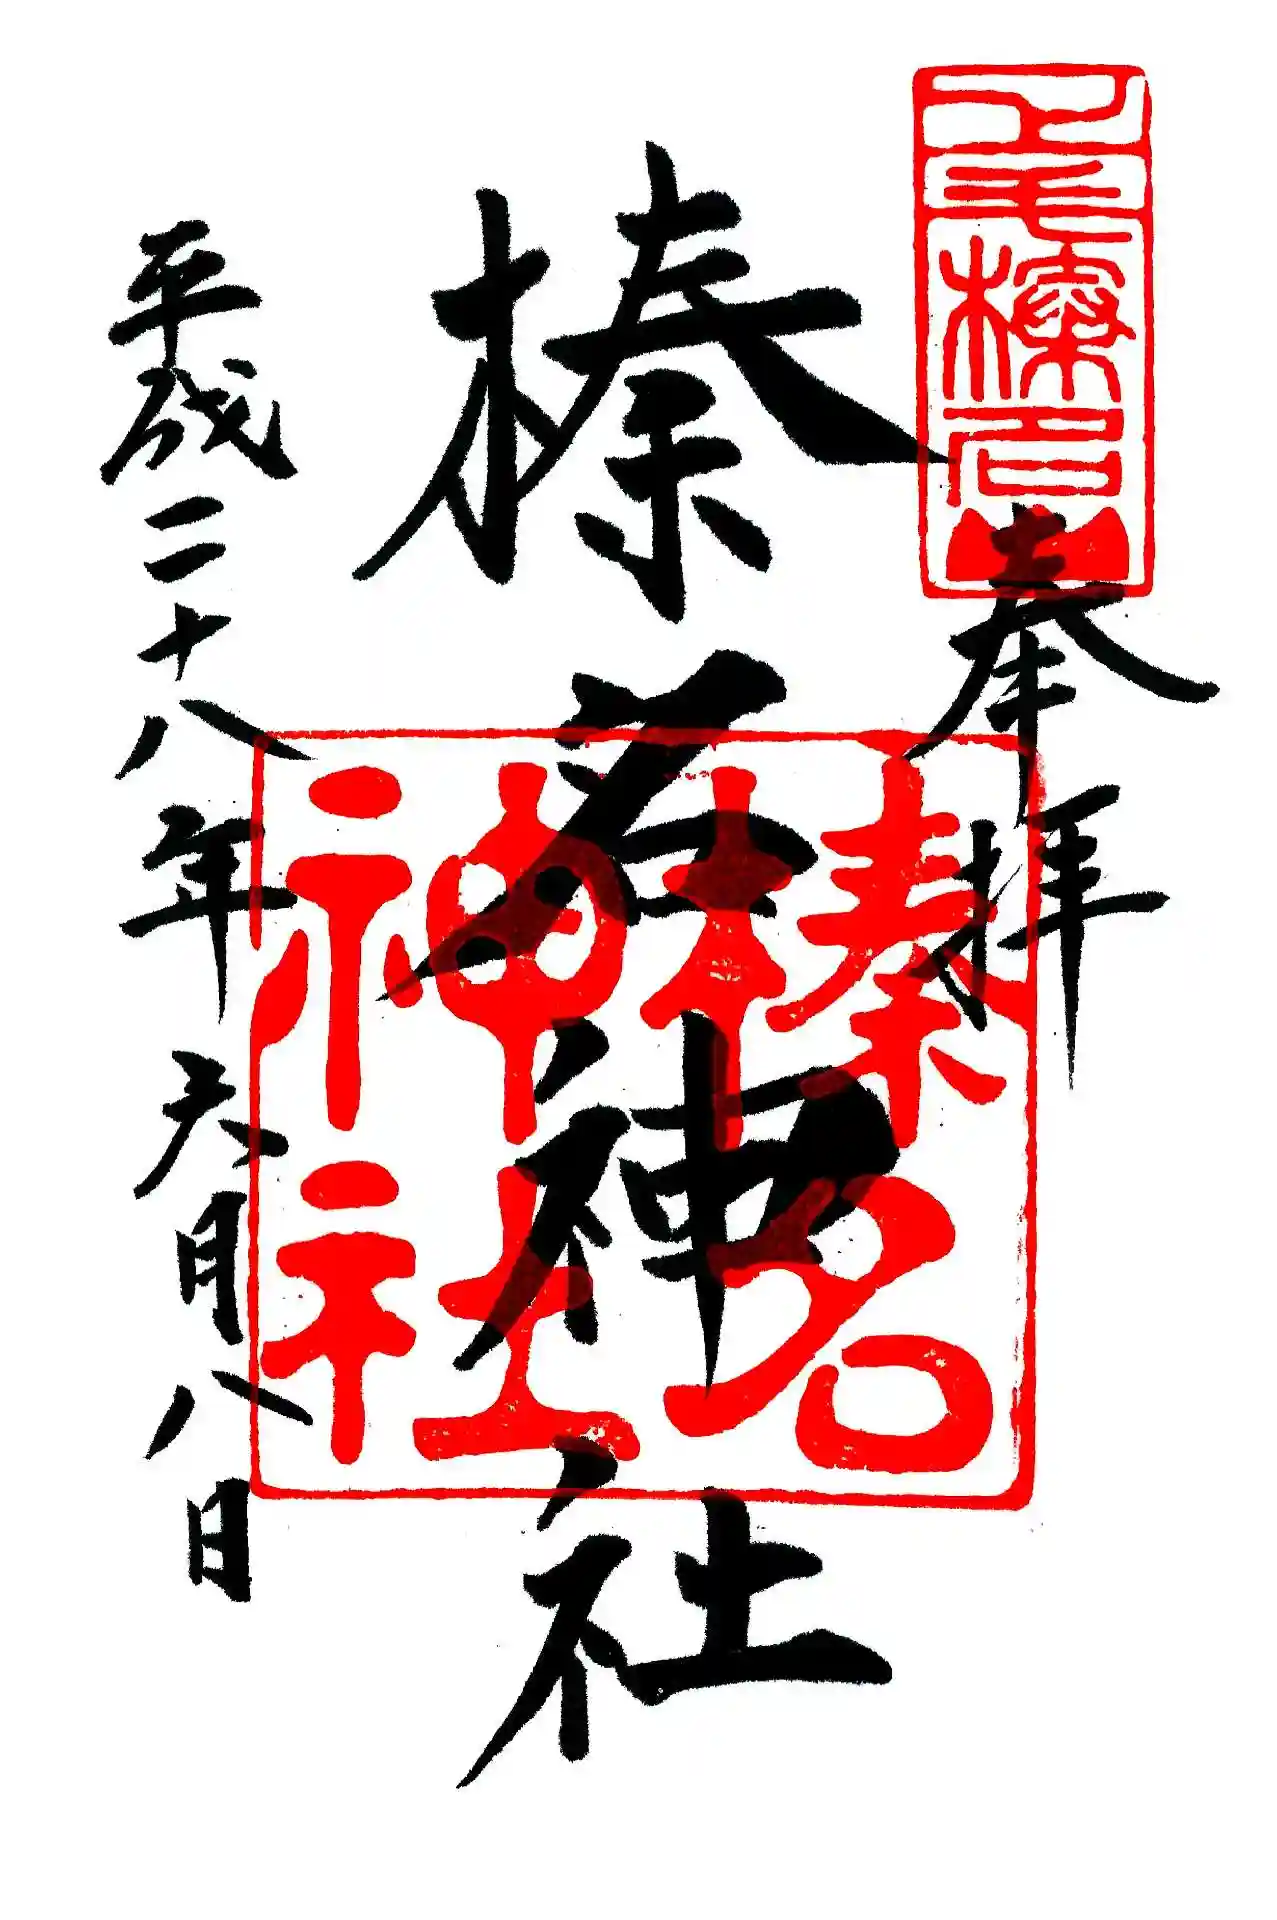 上毛榛名山
奉拝
榛名神社
榛名神社
平成二十八年六月八日